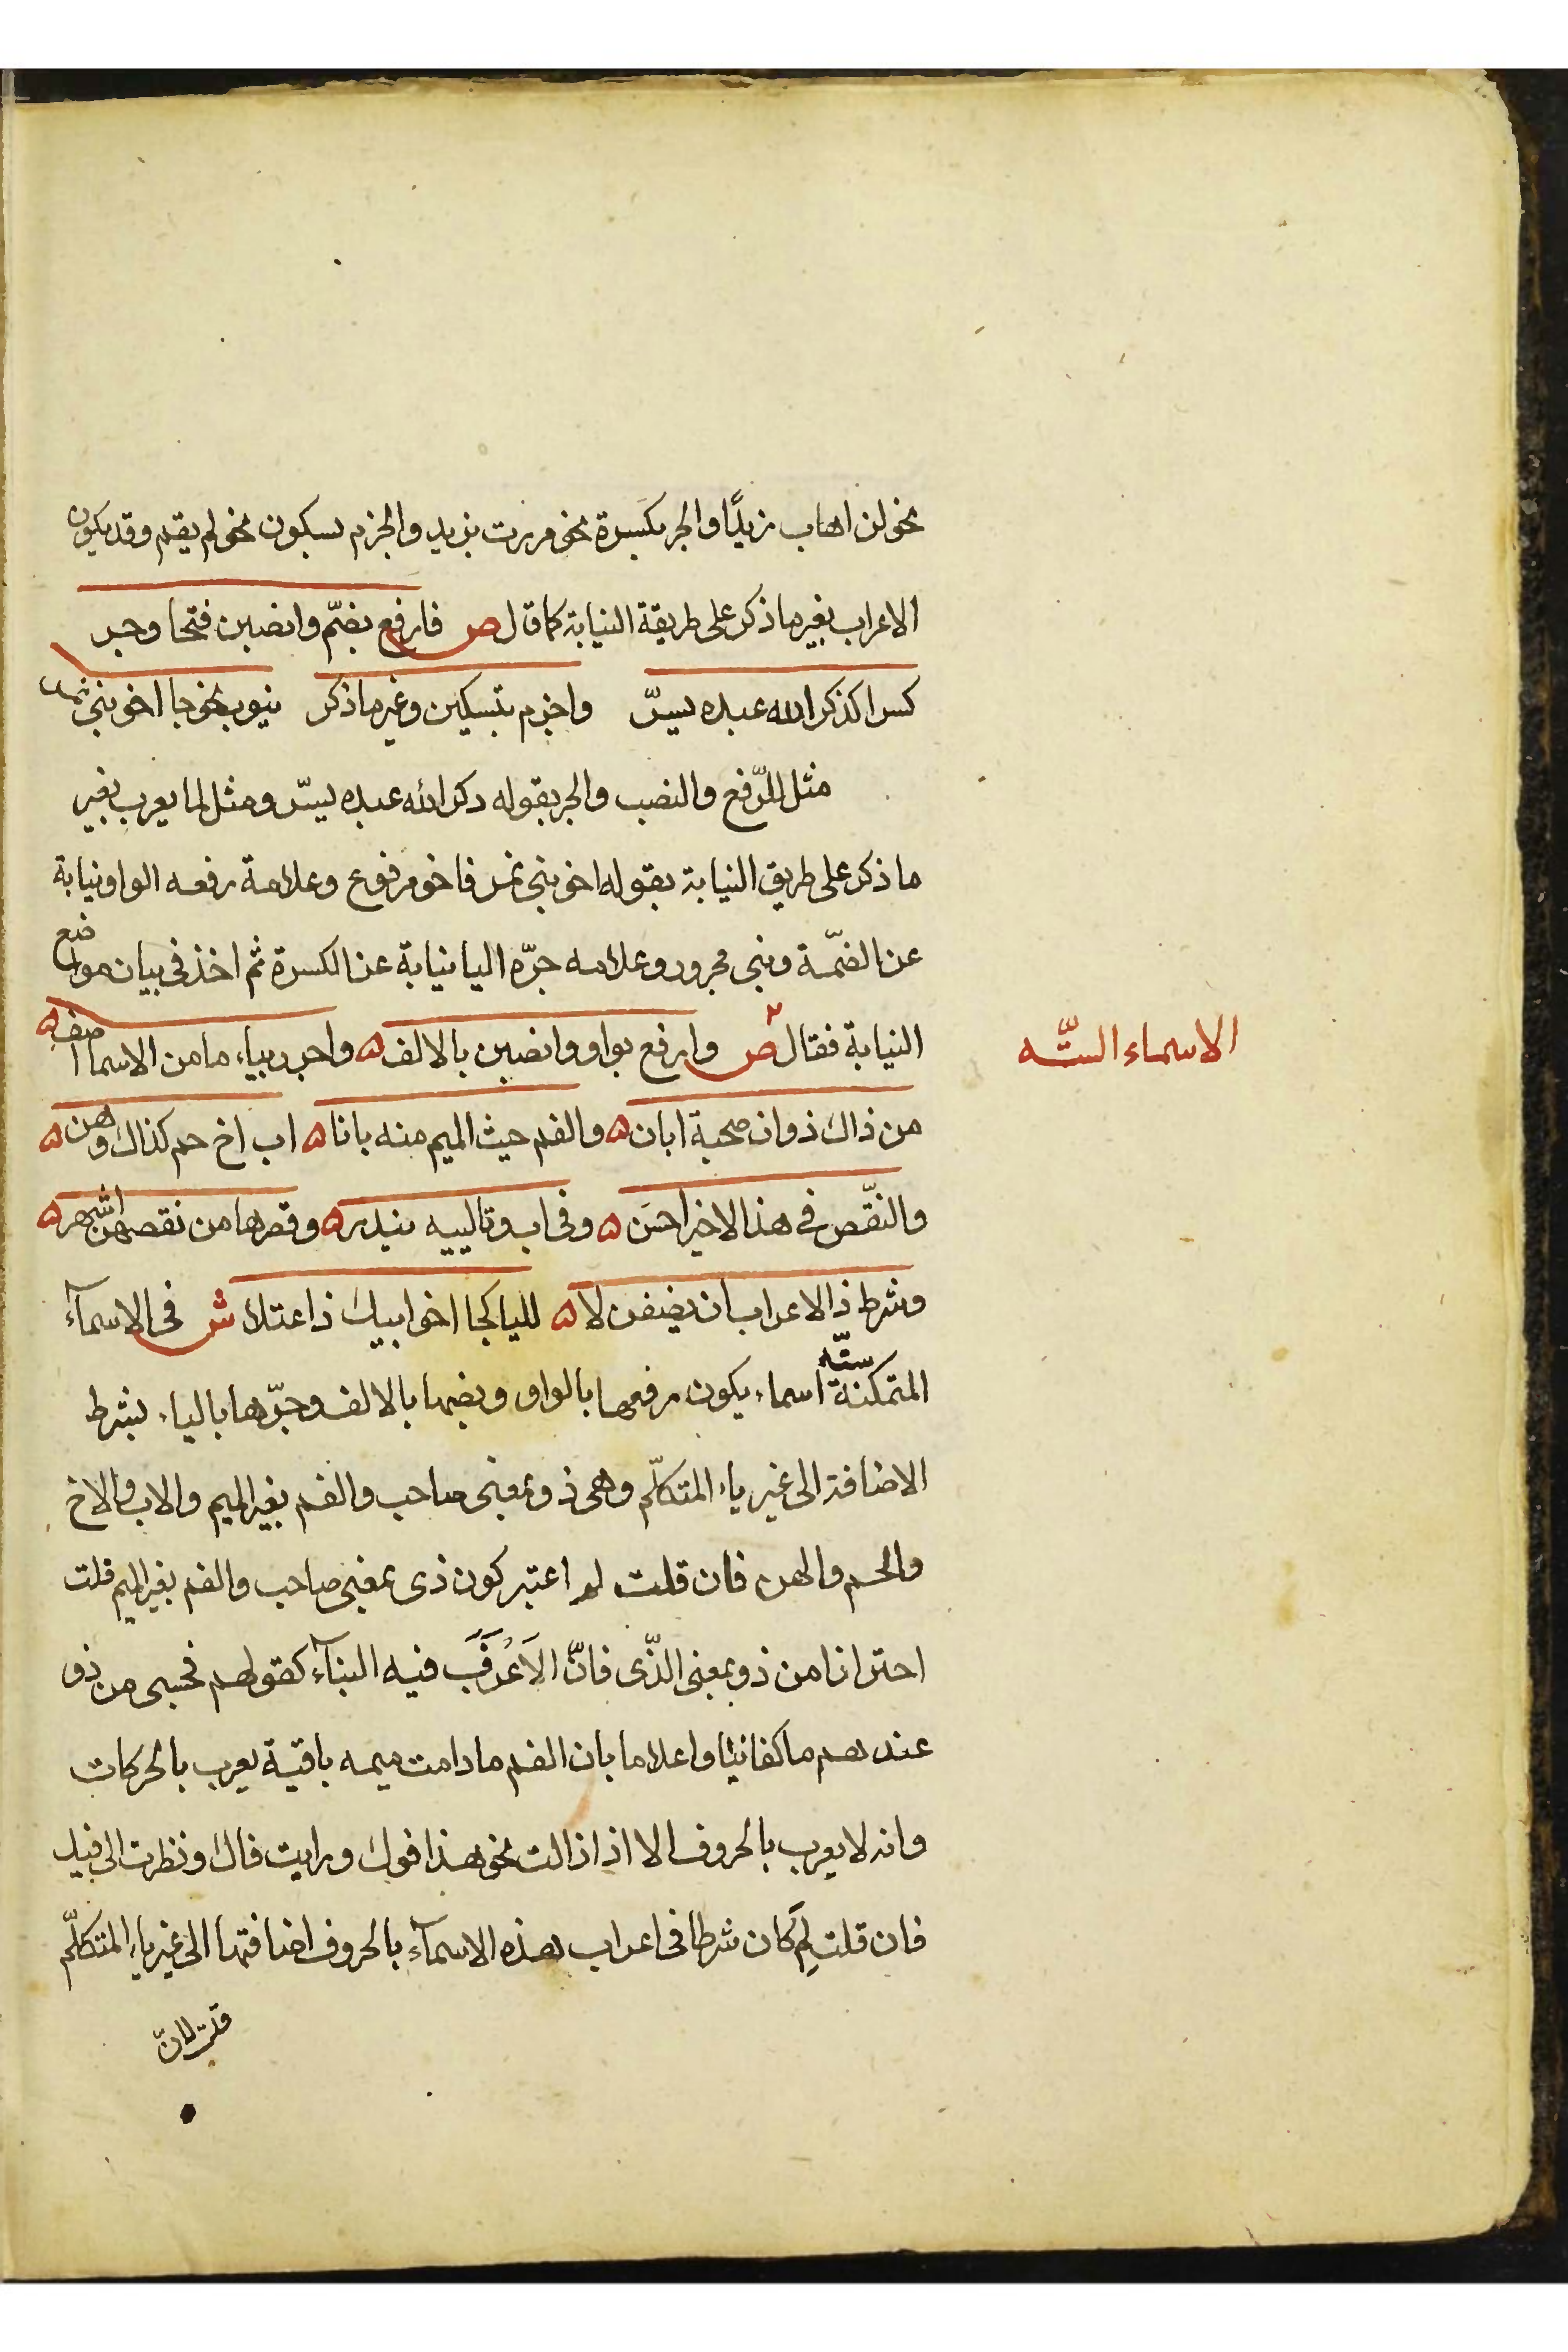 نحو لن اهاب زيدًا والجر بكسرة نحو مررت بزيد والجزم بسكون نحو لم يقم وقد يكون
الاعراب بغير ما ذكر على طريقة النيابة كما قال ص فارفع بضمّ وانصبن فتحا وجر
كسرا كذكر الله عبده يسرّ واجزم بتسكين وغير ما ذكر ينوب نحو جا اخو بني نمر
مثل للرّفع والنصب والجر بقوله ذكر الله عبده يسرّ ومثل لما يعرب بغير
ما ذكر على طريق النيابة بقوله اخو بني نمر فاخو مرفوع وعلامة رفعه الواو نيابة
عن الضمّة وبني مجرور وعلامه جرّه اليا نيابة عن الكسرة ثم اخذ في بيان مواضع
النيابة فقال ص وارفع بواو وانصبن بالالف ه واجرر بياء ما من الاسما اصف ه
الاسماء الستّه
من ذاك ذو ان صحبة ابان ه والفم حيث الميم منه بانا ه اب اخ حم كذاك وهن ه
والنقّص في هذا الاخير احسَن ه وفي اب وتالييه يندر ه وقصرها من نقصهن اشهر ه
وشرط ذا الاعراب ان يضفن لا ه لليا كجا اخو ابيك ذا اعتلا ش في الاسمآء
المتمكنة ستّه اسماء يكون رفعها بالواو ونصبها بالالف وجرّها بالياء بشرط
الاضافة الى غير ياء المتكلّم وهي ذو بمعنى صاحب والفم بغير الميم والاب والاخ
والحم والهن فان قلت لم اعتبر كون ذي بمعنى صاحب والفم بغير الميم قلت
احترازا من ذو بمعنى الذّى فانّ الاَعْرَفَ فيه البنآء كقولهم فحسبى من ذو
عندهم ما كفانيا واعلاما بان الفم ما دامت ميمه باقية يعرب بالحركات
وانه لا يعرب بالحروف الا اذا زالت نحو هذا فوك ورايت فاك ونظرت الى فيك
فان قلت لِمَ كان شرطا في اعراب هذه الاسمآء بالحروف اضافتها الى غير ياء المتكلّم
قلت لانّ